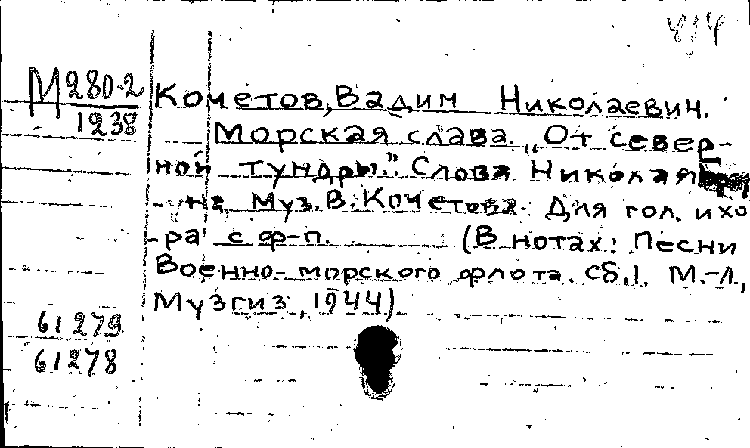 М 280-2
1238
Кочетов, Вадим Николаевич.
Морская слава. „От север-
ной тундры." Слова Николая
на. Муз. В. Кочетова. Для гол. и хо
-ра с ф-п. (В нотах: Песни
Военно-морского флота. Сб.1. М.-Л.,
Музгиз, 1944)
61279
61278